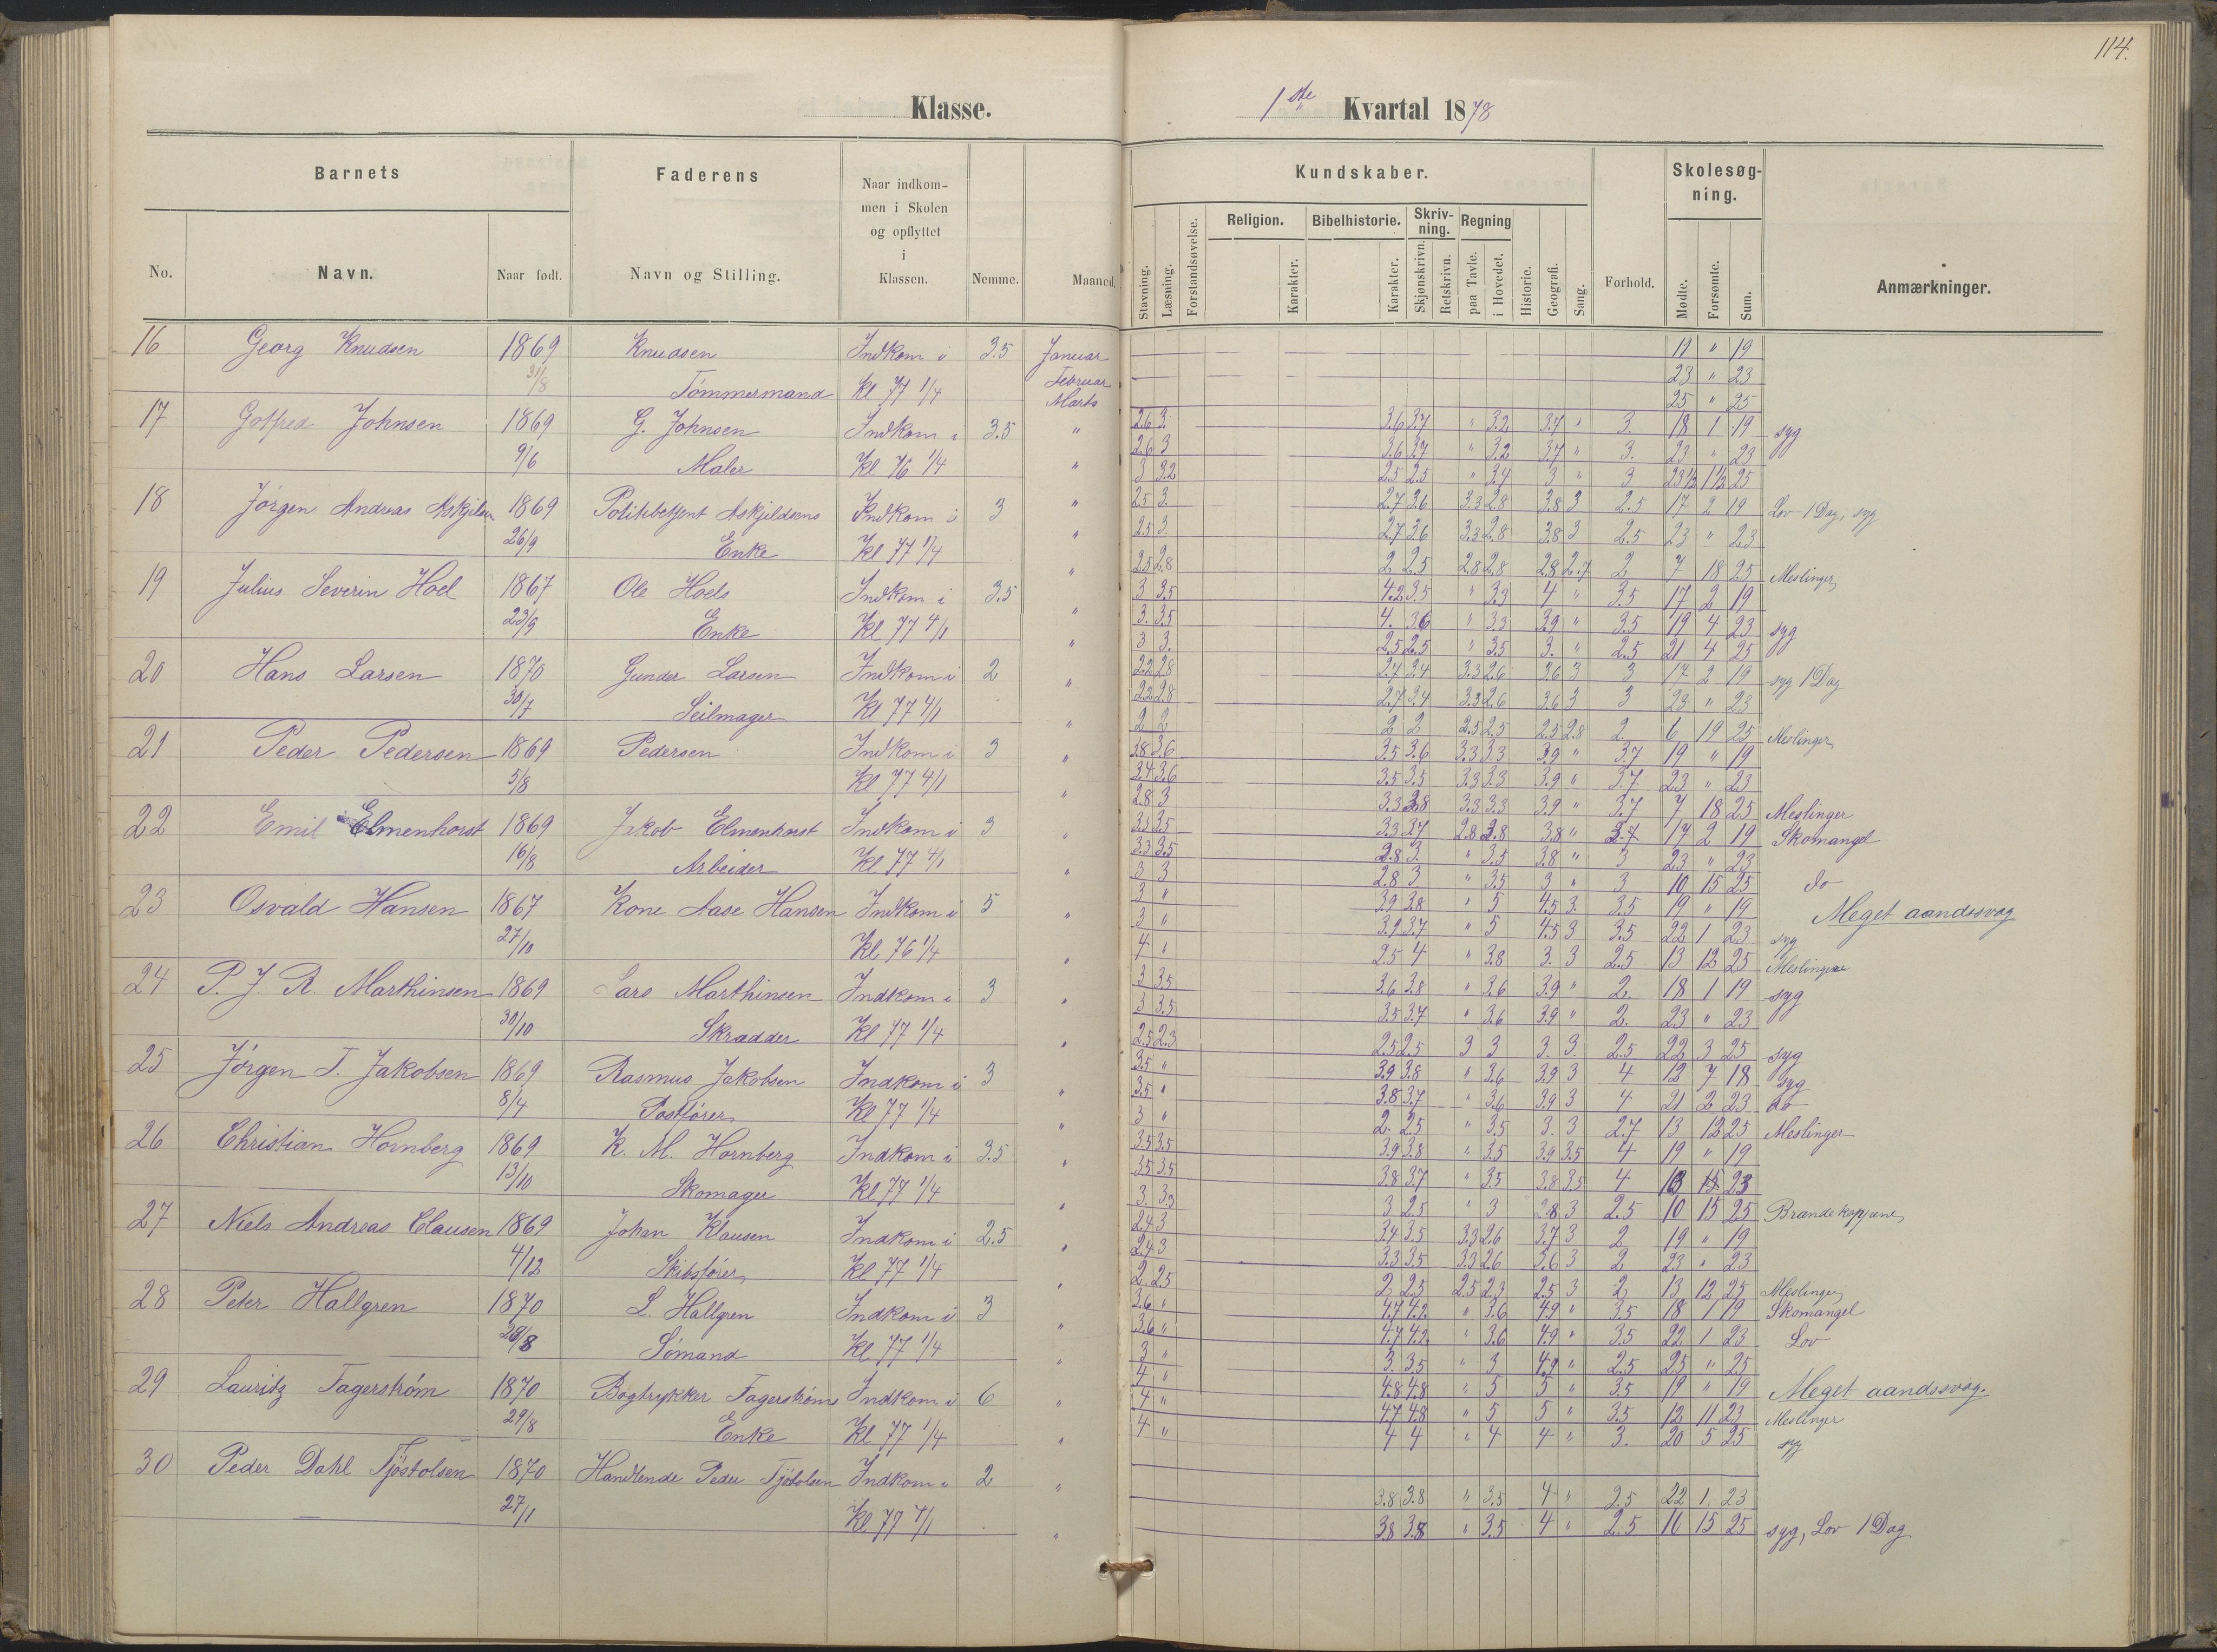 114.
Klasse.
1ste Kvartal 1878
Barnets
Faderens
Naar indkom-
men i Skolen
og opflyttet
i
Klassen.
Nemme.
Maaned.
No.
Navn.
Naar født.
Navn og Stilling.
Kundskaber.
Stavning.
Læsning.
Forstandsøvelse.
Religion.
Karakter.
Bibelhistorie.
Karakter.
Skriv-
ning.
Skjønskrivn.
Retskrivn.
Regning
paa Tavle.
i Hovedet.
Historie.
Geografi.
Sang.
Forhold.
Skolesøg-
ning.
Mødte.
Forsømte.
Sum.
Anmærkninger.
16 Georg Knudsen 1869 Knudsen Indkom i 3.5 Januar
31/8 Tømmermand Kl 77 1/4 Februar
Marts
17 Gotfred Johnsen 1869 G. Johnsen Indkom i 3.5 "
9/6 Maler Kl 76 1/4 "
18 Jørgen Andreas Askjelsen 1869 Politibetjent Askjeldsens Indkom i 3 "
26/9 Enke Kl 77 1/4 "
19 Julius Severin Hoel 1867 Ole Hoels Indkom i 3.5 "
23/9 Enke Kl 77 4/1 "
20 Hans Larsen 1870 Gunder Larsen Indkom i 2 "
30/7 Seilmager Kl 77 4/1 "
21 Peder Pedersen 1869 Pedersen Indkom i 3 "
5/8 Kl 77 4/1 "
22 Emil Elmenhorst 1869 Jakob Elmenhorst Indkom i 3 "
16/8 Arbeider Kl 77 4/1 "
23 Osvald Hansen 1867 Kone Aase Hansen Indkom i 5 "
27/10 Kl 76 1/4 "
24 P. J. R. Marthinsen 1869 Lars Marthinsen Indkom i 3 "
30/10 Skrædder Kl 77 1/4 "
25 Jørgen T. Jakobsen 1869 Rasmus Jakobsen Indkom i 3
8/4 Postfører Kl 77 1/4 "
26 Christian Hornberg 1869 K. M. Hornberg Indkom i 3.5 "
13/10 Skomager Kl 77 1/4 "
27 Niels Andreas Clausen 1869 Johan Klausen Indkom i 2.5 "
4/12 Skibsfører Kl 77 1/4 "
28 Peter Hallgren 1870 L. Hallgren Indkom i 3
28/8 Sømand Kl 77 1/4 "
29 Lauritz Fagerstrøm 1870 Bogtrykker Fagerstrøms Indkom i 6 "
29/8 Enke Kl 77 1/4 "
30 Peder Dahl Tjøstolsen 1870 Handlende Peder Tjøstolsen Indkom i 2 "
27/1 Kl 77 4/1 "
11 " 19
23 " 23
25 " 25
2.6 3. 3.6 3.7 " 3.2 3.7 " 3. 18 1 19 syg
2.6 3 3.6 3.7 " 3.2 3.7 " 3. 23 " 23
3 3.2 2.5 2.5 " 3.4 3 " 3 23 1/2 1 1/2 25
2.5 3. 2.7 3.6 3.3 2.8 3.8 3 2.5 17 2 19 Lov 1 Dag, syg
2.5 3. 2.7 3.6 3.3 2.8 3.8 3 2.5 23 " 23
2.5 2.8 2 2.5 2.8 2.8 2.8 2.7 2 7 18 25 Meslinger
3 3.5 4.2 3.5 " 3.3 4 " 3.5 17 2 19
3. 3.5 4. 3.6 " 3.3 3.9 " 3.5 19 4 23 syg
3 3. 2.5 2.5 " 3.5 3. " 2.5 21 4 25
2.2 2.8 2.7 3.4 3.3 2.6 3.6 3 3 17 2 19 syg 1 Dag
2.2 2.8 2.7 3.4 3.3 2.6 3.6 3 3 23 " 23
2 2 2 2 2.5 2.5 2.5 2.8 2 6 19 25 Meslinger
3.8 3.6 3.5 3.6 3.3 3.3 3.9 " 3.7 19 " 19
3.4 3.6 3.5 3.5 3.3 3.3 3.9 " 3.7 23 " 23
2.8 3 3.3 3.8 3.3 3.3 3.9 " 3.7 7 18 25 Meslinger
3.3 3.5 3.3 3.7 2.8 3.8 3.8 " 3.7 17 2 19 Skomangel
3.3 3.5 2.8 3. " 3.5 3.8 " 3 23 " 23
3 3 2.8 3 " 3.5 3 " 3 10 15 25 do
3 " 3.9 3.8 " 5 4.5 3. 3.5 19 " 19 Meget aandssvag
3 " 3.9 3.7 " 5 4.5 3 3.5 22 1 23 syg
4 " 2.5 4 " 3.8 3. 3 2.5 13 12 25 Meslingene
3 3.5 3.6 3.8 " 3.6 3.9 " 2. 18 1 19 syg
3 3.5 3.5 3.7 " 3.6 3.9 " 2. 23 " 23
2.5 2.3 2.5 2.5 3 3 3. 3. 2.5 22 3 25 syg
3.5 " 3.9 3.8 " 3.6 3.9 3 4 12 7 18 syg
3.5 " 3.8 3.7 " 3.6 3.9 3 4 21 2 23 do
3 " 2. 2.5 " 3.5 3. 3 2.7 13 12 25 Meslinger
3.5 3.5 3.9 3.8 " 3.5 3.9 3.5 4 19 " 19
3.5 3.5 3.8 3.7 " 3.5 3.8 3.5 4 23
3. 3.3 3 2.5 " 3 2.8 3 2.5 10 15 25 Brandekopperne
2.4 3 3.4 3.5 3.3 2.6 3.7 3 2 19 " 19
2.4 3 3.3 3.5 3.3 2.6 3.6 3 2 23 " 23
2. 2.5 2 2.5 2.5 2.3 2.5 3 2 13 12 25 Meslinger
3.6 " 4.7 4.2 " 3.6 4.9 " 3.5 18 1 19 Skomangel
3.6 " 4.7 4.2 " 3.6 4.9 " 3.5 22 1 23 Lov
3 " 3. 3.5 " 3 4.9 " 2.5 25 " 25
4 " 4.8 4.8 " 5 5 " 3.5 19 " 19 Meget aandssvag.
4 " 4.7 4.8 " 5 5 " 3.5 12 11 23 Meslinger
4 " 4 4 " 4 4 " 3. 20 5 25 syg
3.8 3.8 " 3.5 4 " 2.5 22 1 23
3.8 3.8 " 3.5 4 " 2.5 10 15 25 syg, Lov 1 Dag